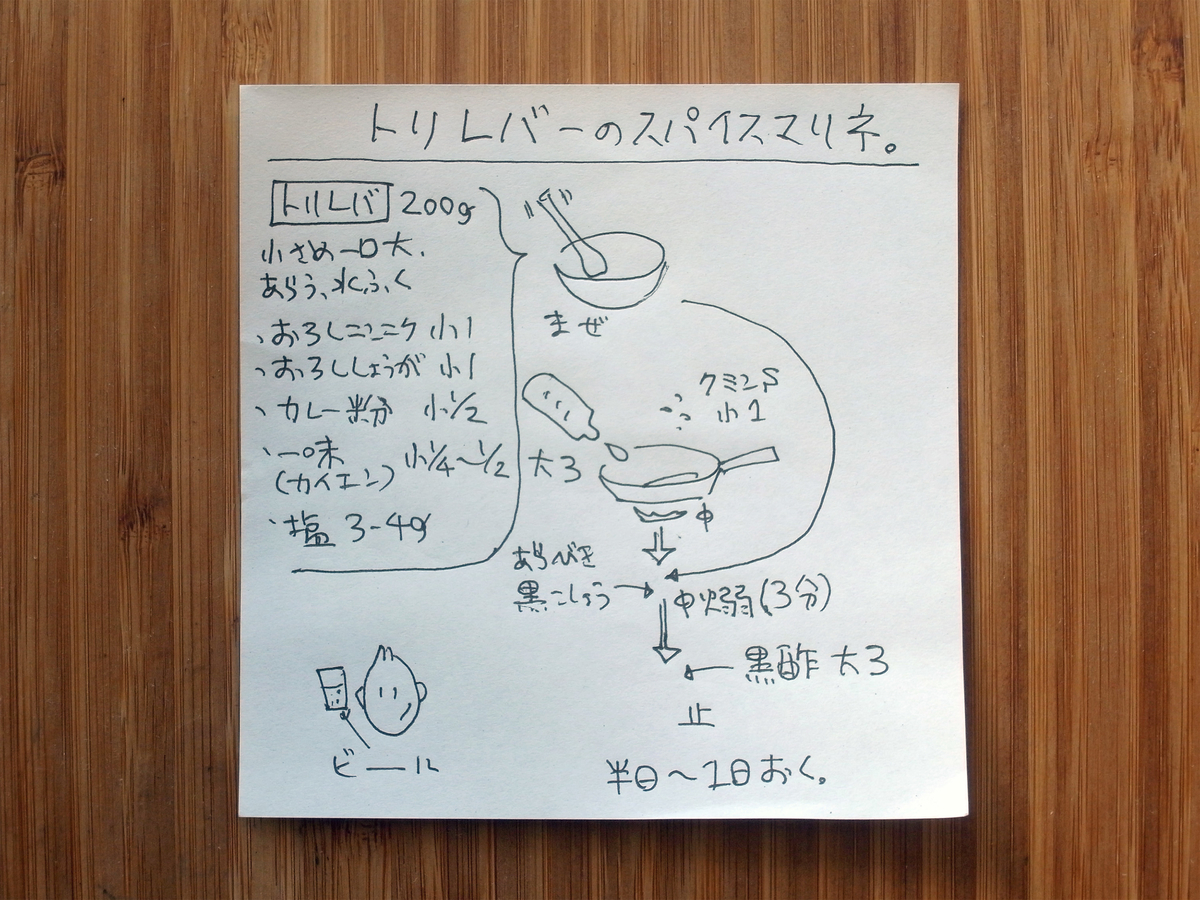 トリレバーのスパイスマリネ。
トリレバ 200g
小さめ一口大.
あらう、水ふく
、おろしニンニク 小1
、おろししょうが 小1
、カレー粉 小1/2
、一味 小1/4〜1/2
(カイエン)
、塩 3-4g
まぜ
クミンS
小1
大3
中
あらびき
黒こしょう
中火弱(3分)
黒酢 大3
止
半日〜1日おく。
ビール